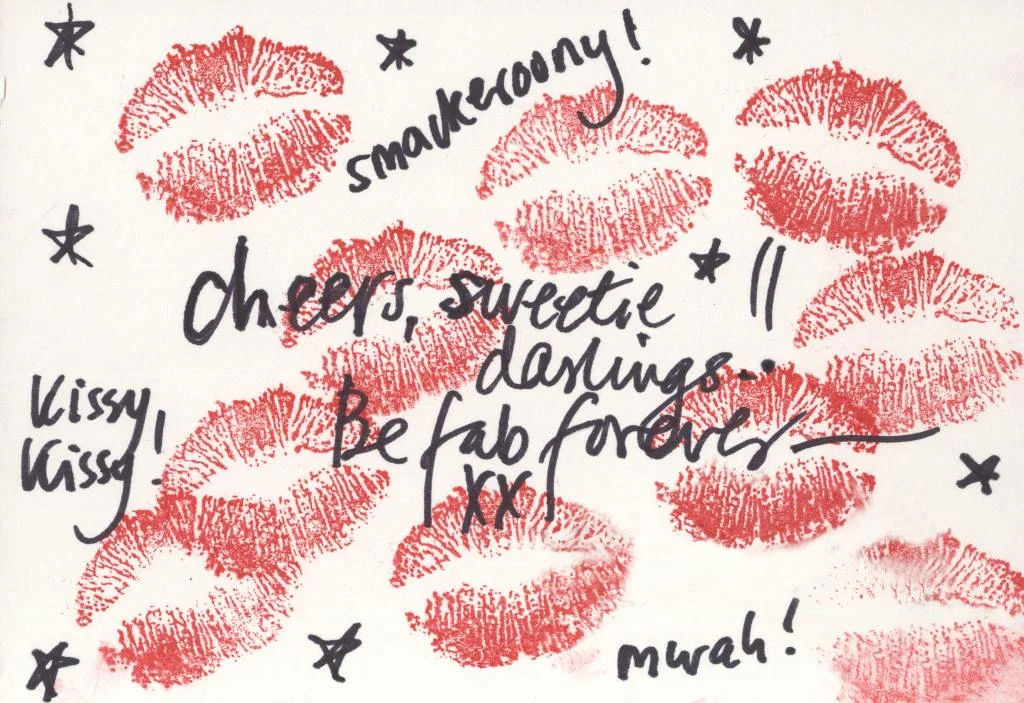 smackeroony!
cheers, sweetie
darlings..
Kissy,
Kissy!
Be fab forever
XX
mwah!